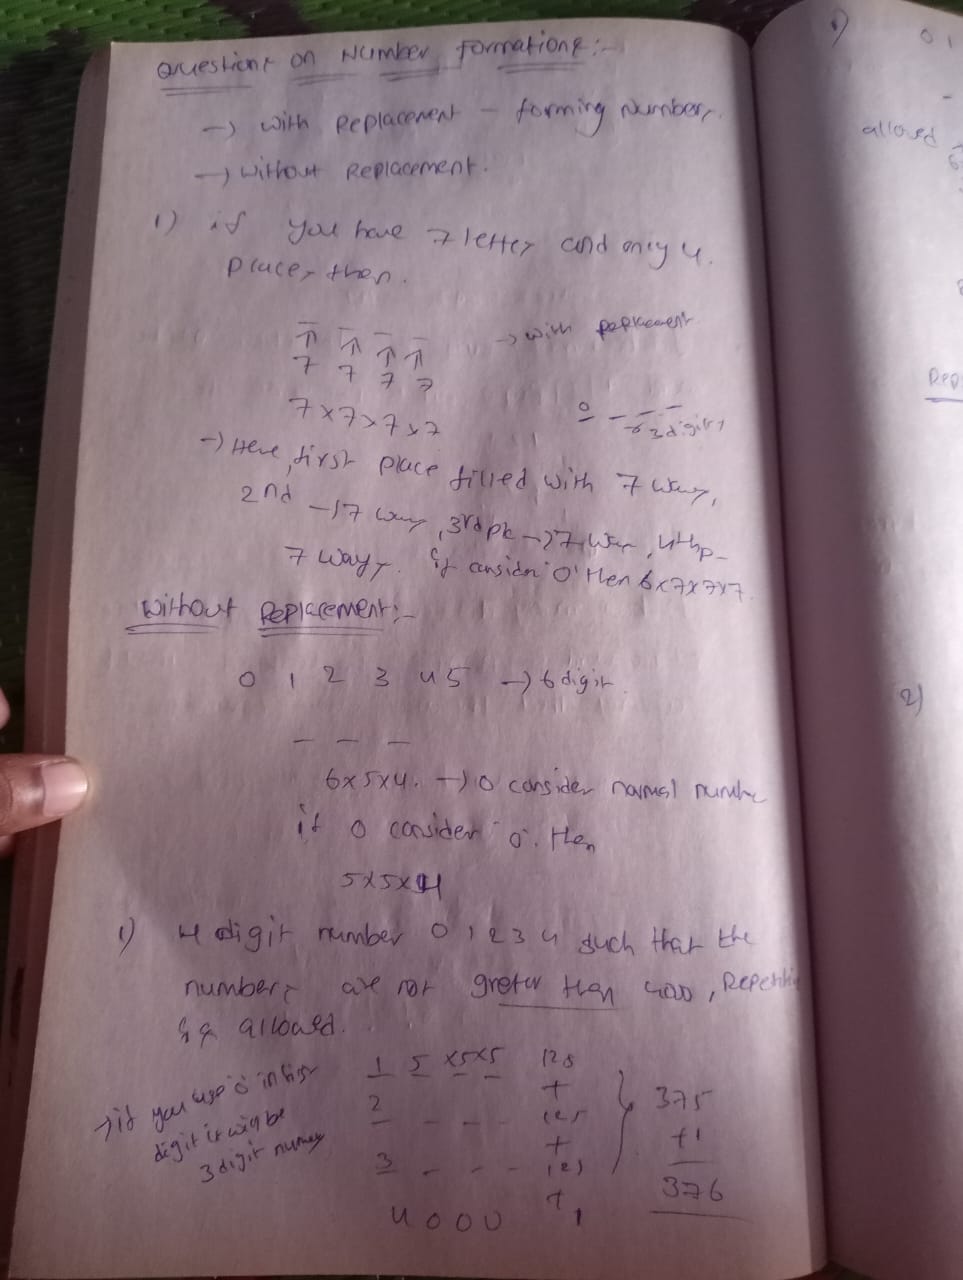 Questions on Number formations:-
→ with Replacement - forming Numbers.
→ without Replacement.
1) if you have 7 letters and only 4
places then.
→ with replacement
7 7 7 7
7x7x7x7
0 _ _ _
→ 3 digits
→ Here, first place filled with 7 ways,
2nd → 7 ways, 3rd pl → 7 ways, 4th p-
7 ways. if consider '0' then 6x7x7x7.
without Replacement:-
0 1 2 3 4 5 → 6 digit
_ _ _
6x5x4. → 0 consider normal numbe
if 0 consider "0". then
5x5x4
1) 4 digit number 0 1 2 3 4 such that the
numbers are not greter then 4000, Repetiti
is allowed.
→ if you use '0' in first
digit it will be
3 digit number
1 5 x5x5 125
+
2 _ _ _ 125
+
3 _ _ _ 125
+
4000 1
375
+1
376
0 1
allowed
Rep
2)